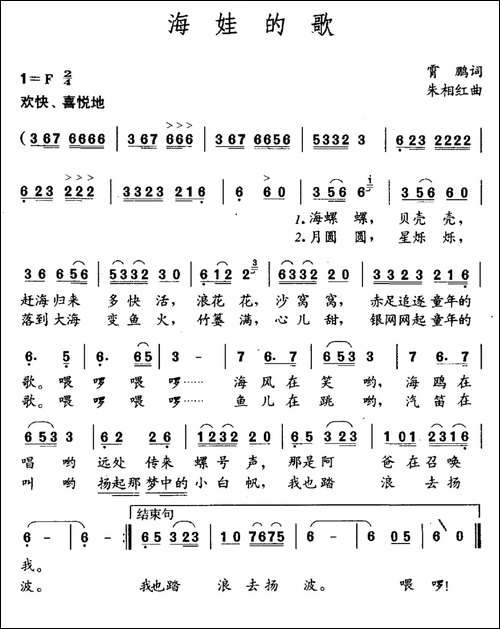 海 娃 的 歌
1=F 2/4
霄 鹏词
朱相红曲
欢快、喜悦地
(367 6666 | 367 666 | 367 6656 | 5332 3 | 623 2222 |
623 222 | 3323 216 | 6 60 | 356 6 | 356 60 |
1.海螺 螺, 贝壳 壳,
2.月圆 圆, 星烁 烁,
36 656 | 5332 30 | 612 2 | 6332 30 | 3323 216 |
赶海归来 多快 活, 浪花 花, 沙窝 窝, 赤足追逐 童年的
落到大海 变鱼 火, 竹篓 满, 心儿 甜, 银网网起 童年的
6. 5 | 6. 65 | 3 - | 7 6.7 | 653 3 | 7 6.7 |
歌。喂 啰 喂 啰…… 海 风在 笑 哟, 海 鸥在
歌。喂 啰 喂 啰…… 鱼 儿在 跳 哟, 汽 笛在
653 3 | 62 26 | 1232 20 | 65 323 | 101 2316 |
唱 哟 远处 传来 螺号 声, 那是 阿 爸在召唤
叫 哟 扬起那 梦中的 小白 帆, 我也 踏 浪 去扬
结束句
6 - | 6 - :| 65 323 | 10 7675 | 6 - | 6 05 | 6 0 |
我。
波。 我也踏 浪 去扬 波。 喂 啰!